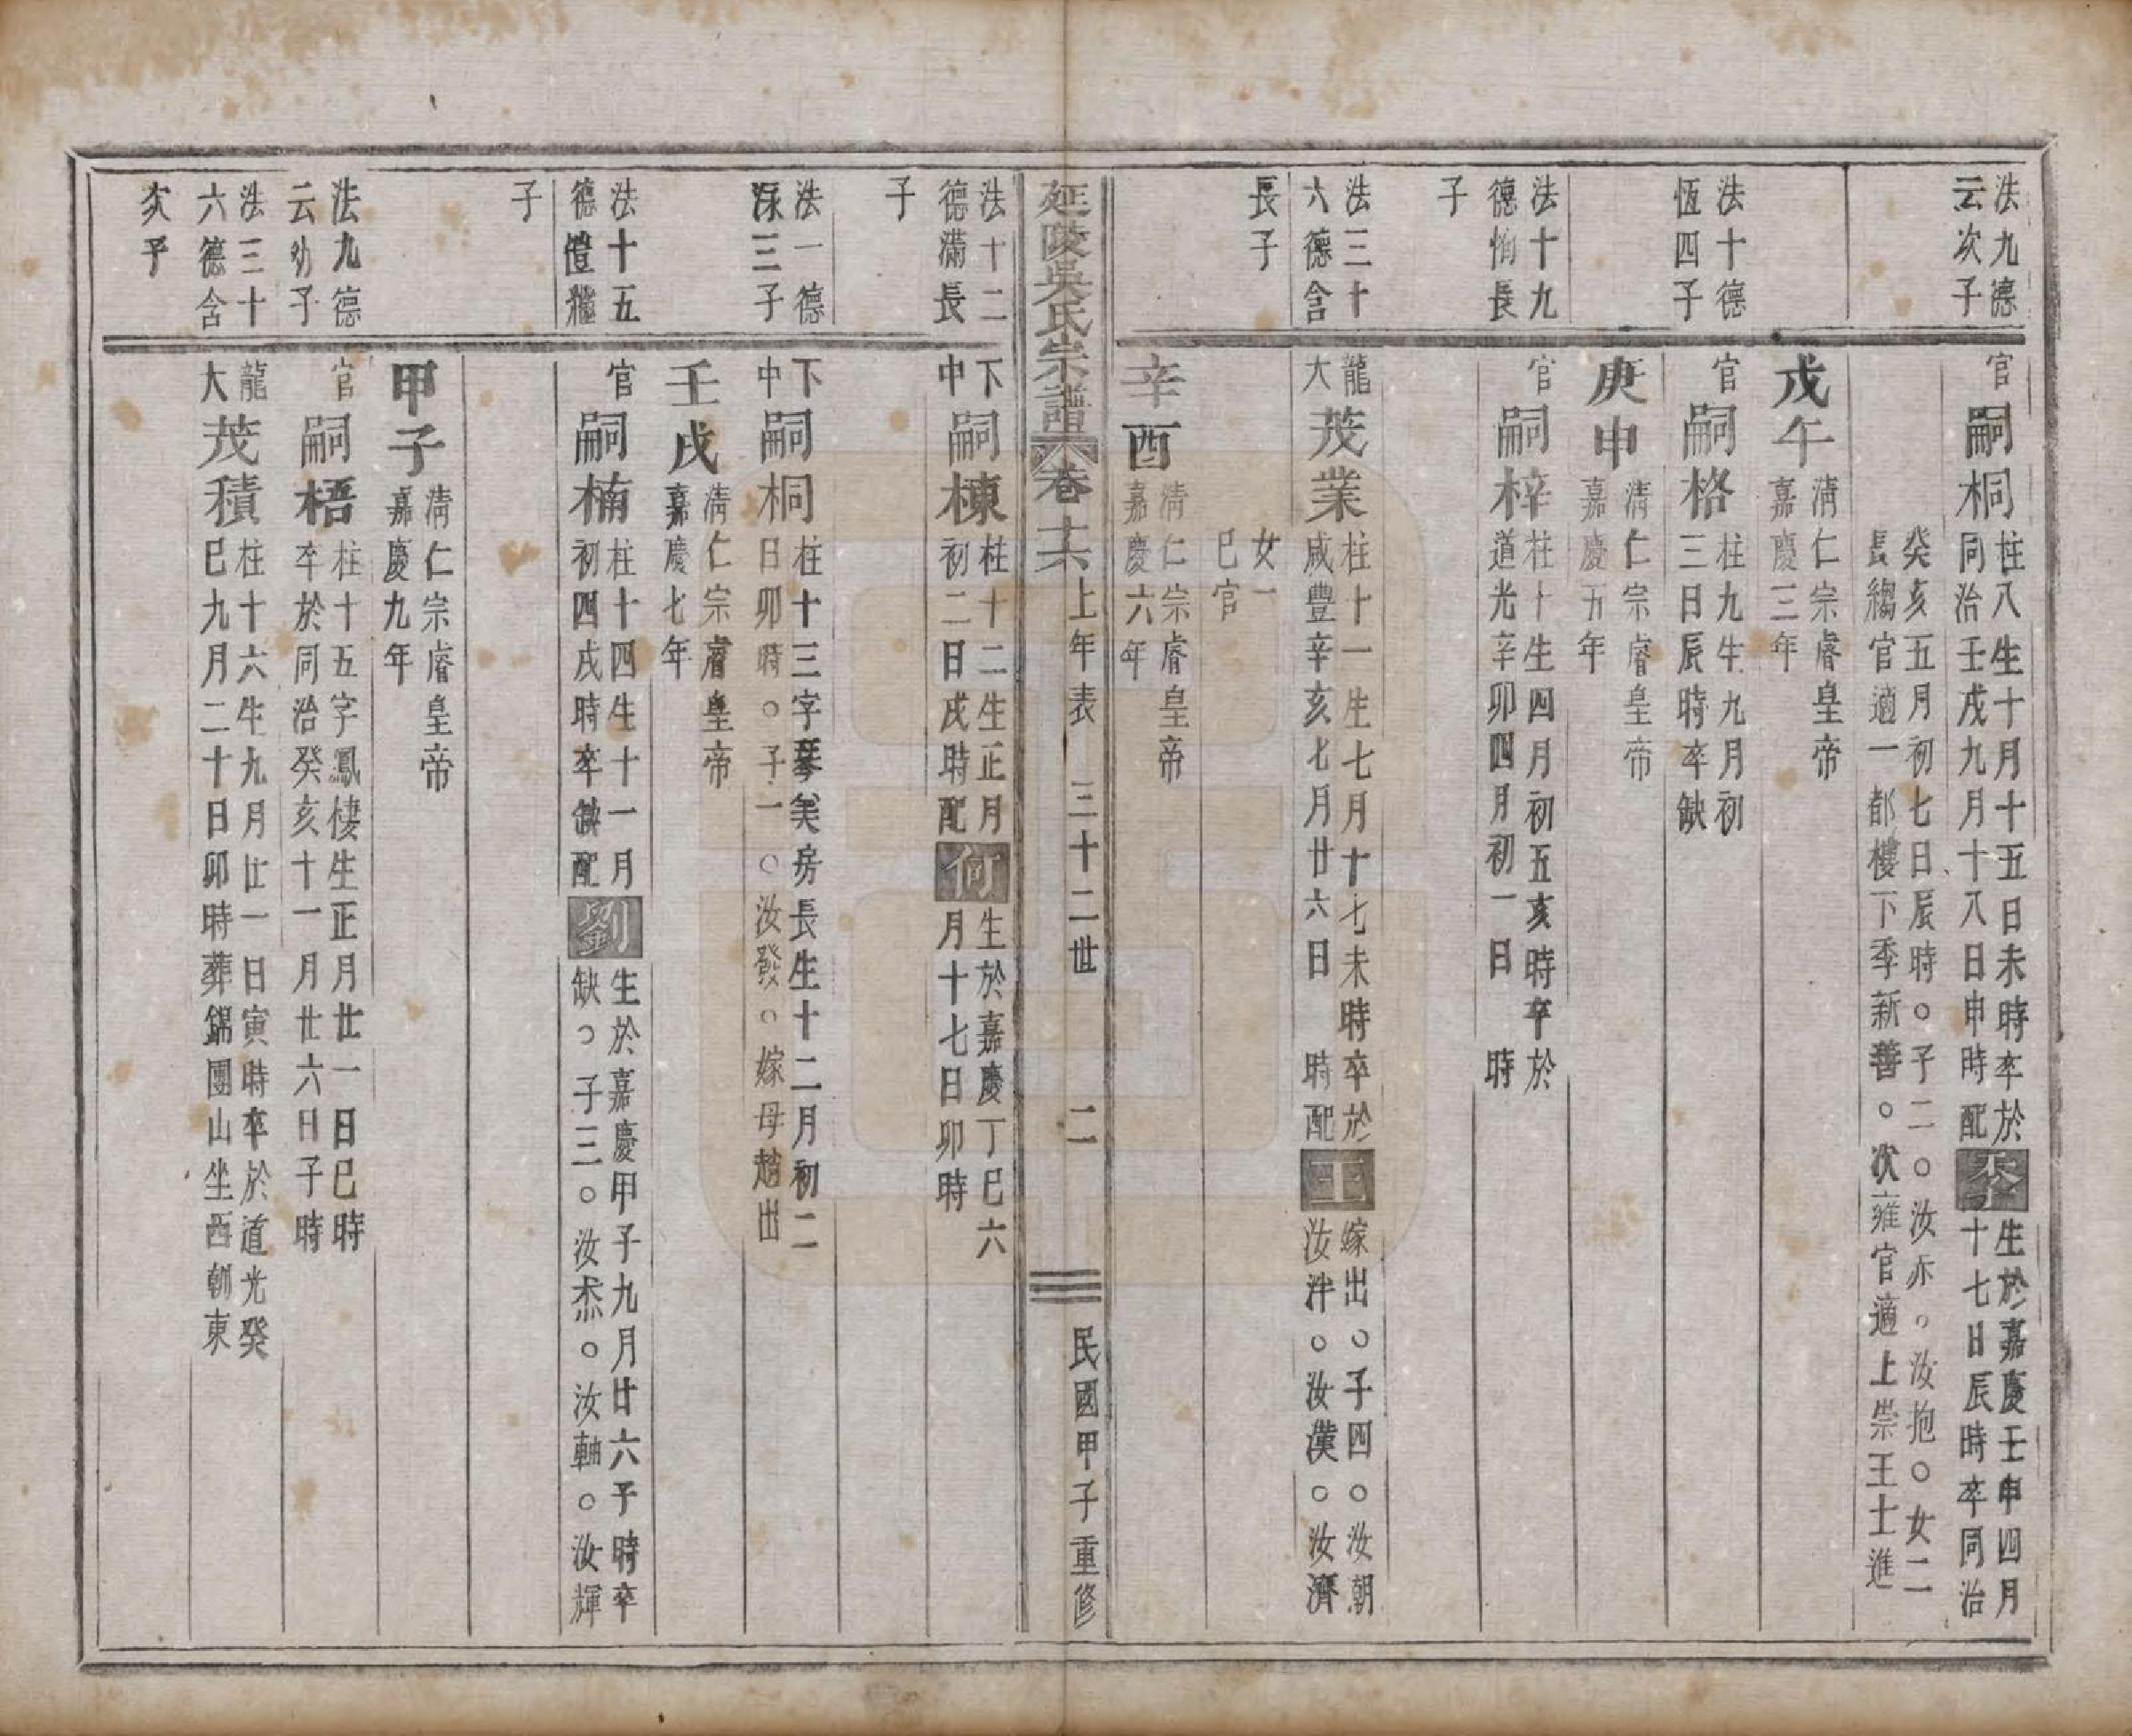 法九德
云次子
官
嗣桐
柱八生十月十五日未時卒於
同治壬戌九月十八日申時配
生於嘉慶壬申四月
十七日辰時卒同治
癸亥五月初七日辰時○子二○汝赤○汝抱○女二
長縐官適一都樓下季新善○次雍官適上崇王士進
戊午
清仁宗睿皇帝
嘉慶三年
法十德
恆四子
官
嗣格
柱九生九月初
三日辰時卒缺
庚申
清仁宗睿皇帝
嘉慶五年
法十九
德恂長
子
官
嗣梓
柱十生四月初五亥時卒於
道光辛卯四月初一日 時
法三十
六德含
長子
龍
大
茂業
柱十一生七月十七未時卒於
咸豐辛亥七月廿六日 時配
王
嫁出○子四○汝朝
汝泮○汝漢○汝濟
女一
巳官
辛酉
清仁宗睿皇帝
嘉慶六年
延陵吳氏宗譜 卷十六上年表 三十二世 二 民國甲子重修
法十二
德滿長
子
下
中
嗣棟
柱十二生正月
初二日戌時配
何
生於嘉慶丁巳六
月十七日卯時
法一德
三子
下
中
嗣桐
柱十三字琴矣房長生十二月初二
日卯時○子一○汝發○嫁母趙出
壬戌
清仁宗睿皇帝
嘉慶七年
法十五
德
子
官
嗣楠
柱十四生十一月
初四戌時卒缺配
劉
生於嘉慶甲子九月廿六子時卒
缺○子三○汝烝○汝軸○汝輝
甲子
清仁宗睿皇帝
嘉慶九年
法九德
云幼子
官
嗣梧
柱十五字鳳棲生正月廿一日巳時
卒於同治癸亥十一月廿六日子時
法三十
六德含
次子
龍
大
茂積
柱十六生九月廿一日寅時卒於道光癸
巳九月二十日卯時葬錦團山坐西朝東